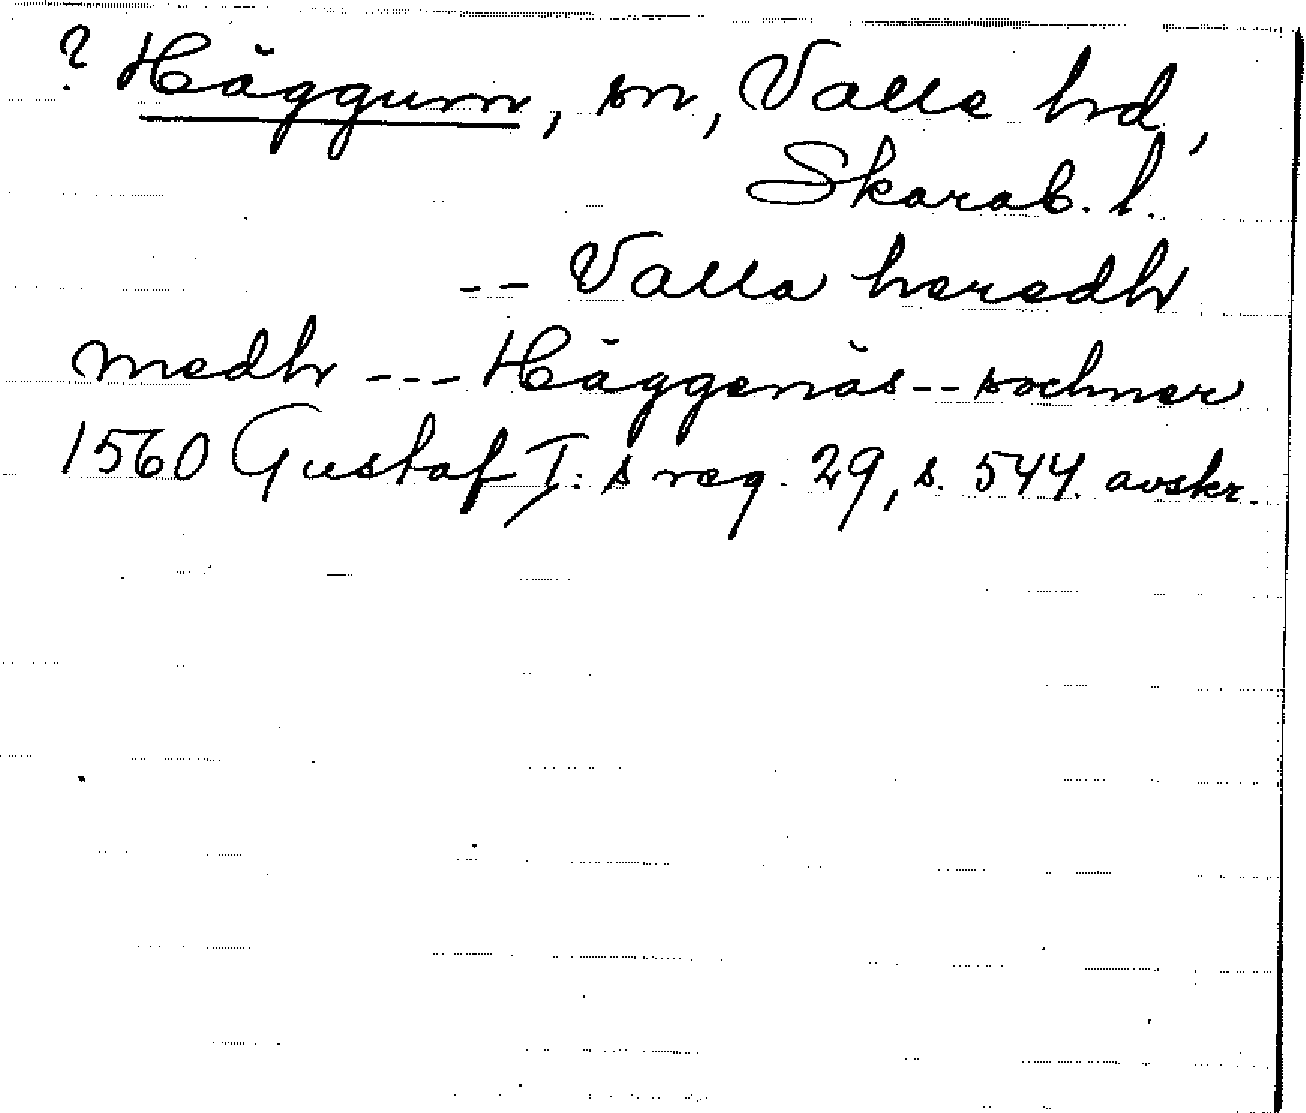 ? Häggum, sn, Valle hd,
Skarab. l.
-- Valla heredh
medh --- Häggenäs -- sochner
1560 Gustaf I:s reg. 29, s. 544. avskr.